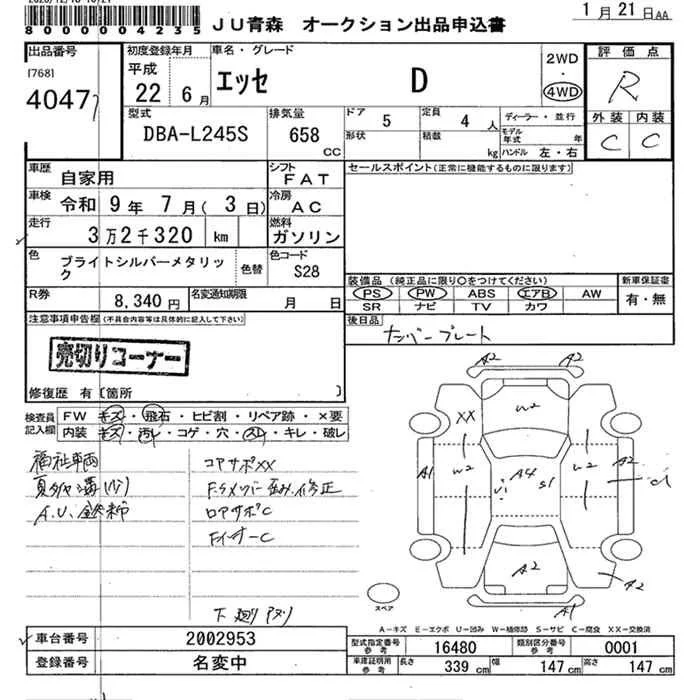 800004235
JU青森 オークション出品申込書
1月21日AA
出品番号
[768]
4047
初度登録年月
平成
22 6月
車名・グレード
エッセ D
2WD
・
4WD
評価点
R
外装 内装
C C
型式
DBA-L245S
排気量
658 CC
ドア 5
定員 4 人
形状
積載 kg
ディーラー・並行
モデル年式 年
ハンドル 左・右
車歴
自家用
シフト
FAT
車検
令和 9年 7月( 3日)
冷房
AC
走行
3万2千320 km
燃料
ガソリン
色
ブライトシルバーメタリック
色替
色コード
S28
R券
8,340円
名変通知期限
月 日
セールスポイント(正常に機能するものに限ります)
装備品(純正品に限り○をつけてください)
PS PW ABS エアB AW
SR ナビ TV カワ
新車保証書
有・無
後日品
ナンバープレート
注意事項申告欄(不具合内容等は具体的に記入して下さい)
売切りコーナー
修復歴 有〔箇所 〕
検査員記入欄
FW キズ・飛石・ヒビ割・リペア跡・×要
内装 キズ・汚レ・コゲ・穴・スレ・キレ・破レ
福祉車両
コアサポXX
夏タイヤ溝(バリ)
Fサメンバー歪み、修正
ロアサポC
FインナーC
下廻りサビ
A2 A2
W2
XX
A1 W2 A4 S1 W2 A2
U1
A2
A2
A1
スペア
A-キズ E-エクボ U-凹み W-補修跡 S-サビ C-腐食 XX-交換済
車台番号
2002953
登録番号
名変中
型式指定番号 参考
16480
類別区分番号 参考
0001
車庫証明用 参考
長さ 339cm
幅 147cm
高さ 147cm